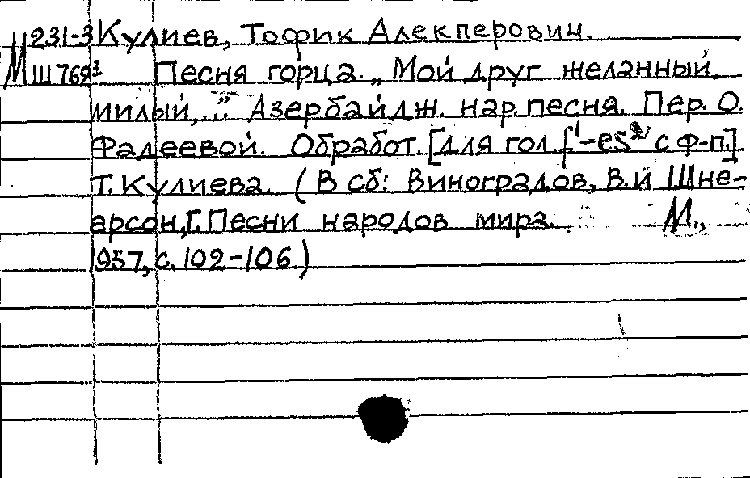 М 231-3 Кулиев, Тофик Алекперович.
Ш769¹ Песня горца. „Мой друг желанный,
милый,.." Азербайдж. нар. песня. Пер. О.
Фадеевой. Обработ. [для гол. f¹-es² с ф-п.]
Т. Кулиева. (В сб: Виноградов, В. и Шне-
ерсон, Г. Песни народов мира. М.,
1957, с. 102-106)